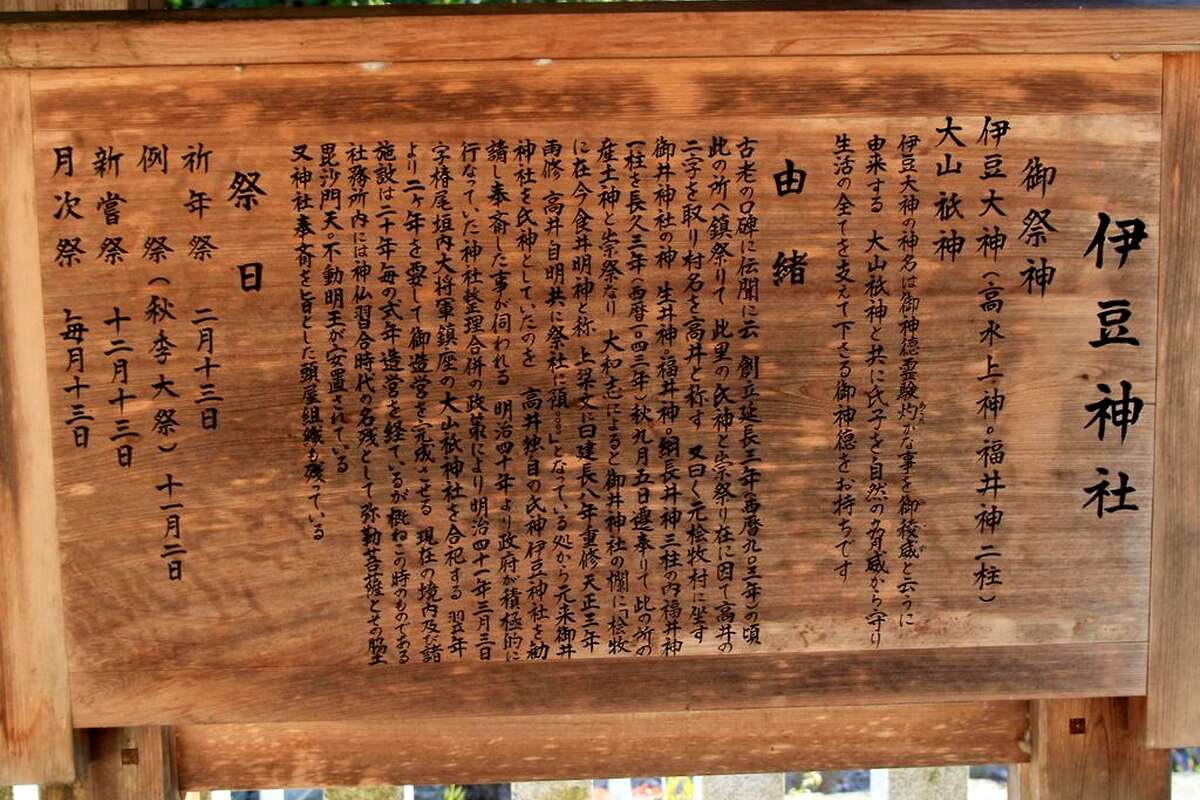 伊豆神社
御祭神
伊豆大神(高水上神。福井神二柱)
大山祇神
伊豆大神の神名は御神徳霊験灼かな事を御稜威と云うに
由来する 大山祇神と共に氏子を自然の脅威から守り
生活の全てを支えて下さる御神徳をお持ちです
由緒
古老の口碑に伝聞に云 創立延長三年(西暦九。三年)の頃
此の所へ鎮祭りて 此里の氏神と崇祭り在に因て高井の
二字を取り村名を高井と称す 又曰く元桧牧村に坐す
御井神社の神 生井神。福井神。綱長井神三柱の内福井神
一柱を長久三年(西暦一。四三年)秋九月五日遷奉りて此の所の
産土神と崇祭なり 大和志によると御井神社の欄に「桧牧
に在今食井明神と称 上梁文に曰建長八年重修天正三年
両修 高井自明共に祭社に預。。」となっている処から元来御井
神社を氏神としていたのを 高井独自の氏神伊豆神社を勧
請し奉斎した事が伺われる 明治四十年より政府が積極的に
行なっていた神社整理合併の政策により明治四十一年三月三日
字椿尾垣内大将軍鎮座の大山祇神社を合祀する 翌年
より二ヶ年を要して御造営を完成させる 現在の境内及び諸
施設は二十年毎の式年造営を経ているが概ねこの時のものである
社務所内には神仏習合時代の名残として弥勒菩薩とその脇士
毘沙門天。不動明王が安置されている
又神社奉斎を旨とした頭屋組織も残っている
祭日
祈年祭 二月十三日
例祭(秋季大祭) 十一月二日
新嘗祭 十二月十三日
月次祭 毎月十三日